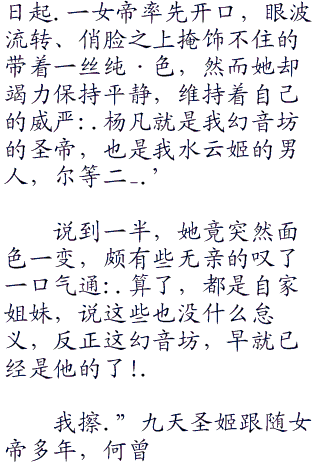 日起.一女帝率先开口，眼波
流转、俏脸之上掩饰不住的
带着一丝纯·色，然而她却
竭力保持平静，维持着自己
的威严:.杨凡就是我幻音坊
的圣帝，也是我水云姬的男
人，尔等二_.’
说到一半，她竟突然面
色一变，颇有些无亲的叹了
一口气通:.算了，都是自家
姐妹，说这些也没什么怠
义，反正这幻音坊，早就已
经是他的了!.
我擦.”九天圣姬跟随女
帝多年，何曾